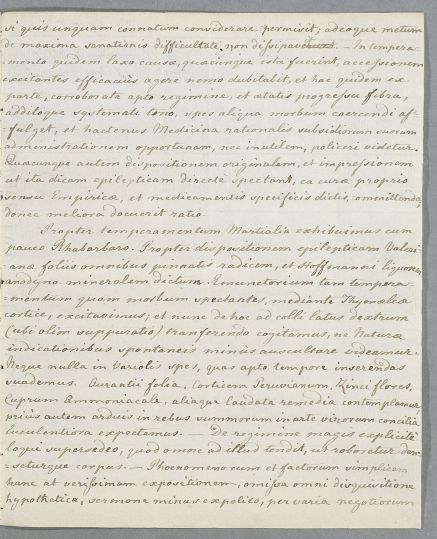 si quis unquam connatum considerare permisit; adeoque metum
de maxima sanationis difficultate non dissipavit. — In tempera-
mento quidem laxo causæ, quæcunque ista fuerint, accessionem
excitantes efficacius agere nemo dubitabit, et hac quidem ex
parte, corroborata apto regimine, et ætatis progressu fibra,
additoque systemati tono, spes aliqua morbum coercendi af-
fulget, et hactenus Medicina rationalis subsidiorum suorum
administrationem opportunam, nec inutilem, polliceri videtur.
Quacunque autem dispositionem originalem, et impressionem
ut ita dicam epilepticam directe spectant, ea cura proprio
sensu Empirica, et medicamentis specificis dictis, omittenda,
donec meliora docuerit ratio.
Propter temperamentum Martialia exhibuimus cum
pauco Rhabarbaro. Propter dispositionem epilepticam Valeri-
anæ foliis omnibus pinnatis radicem, et Hoffmanni liquorem
anodynum mineralem dictum. Emunctorium tam tempera-
mentum quam morbum spectantes, mediante Thymeleæ
cortice, excitavimus; et nunc de hoc ad colli latus dextrum
(ubi olim suppuratio) transferendo cogitamus, ne Naturæ
indicationibus spontaneis minus auscultare videamur.
Neque nulla in Variolis spes, quas apto tempore inserendas
suademus. Aurantii folia, Corticem Peruvianum, Zinci flores,
Cuprum Ammoniacale, aliaque laudata remedia contemplamur,
prius autem arduis in rebus summorum in arte virorum concilia
luculentiora expectamus. — De regimine magis explicite
loqui supersedeo, quod omne ad illud tendit, ut roboretur den-
seturque corpus. — Phœnomenorum et factorum simplicem
hanc at verissimam expositionem, omissa omni disquisitione
hypothetica, sermone minus expolito, per varia negotiorum